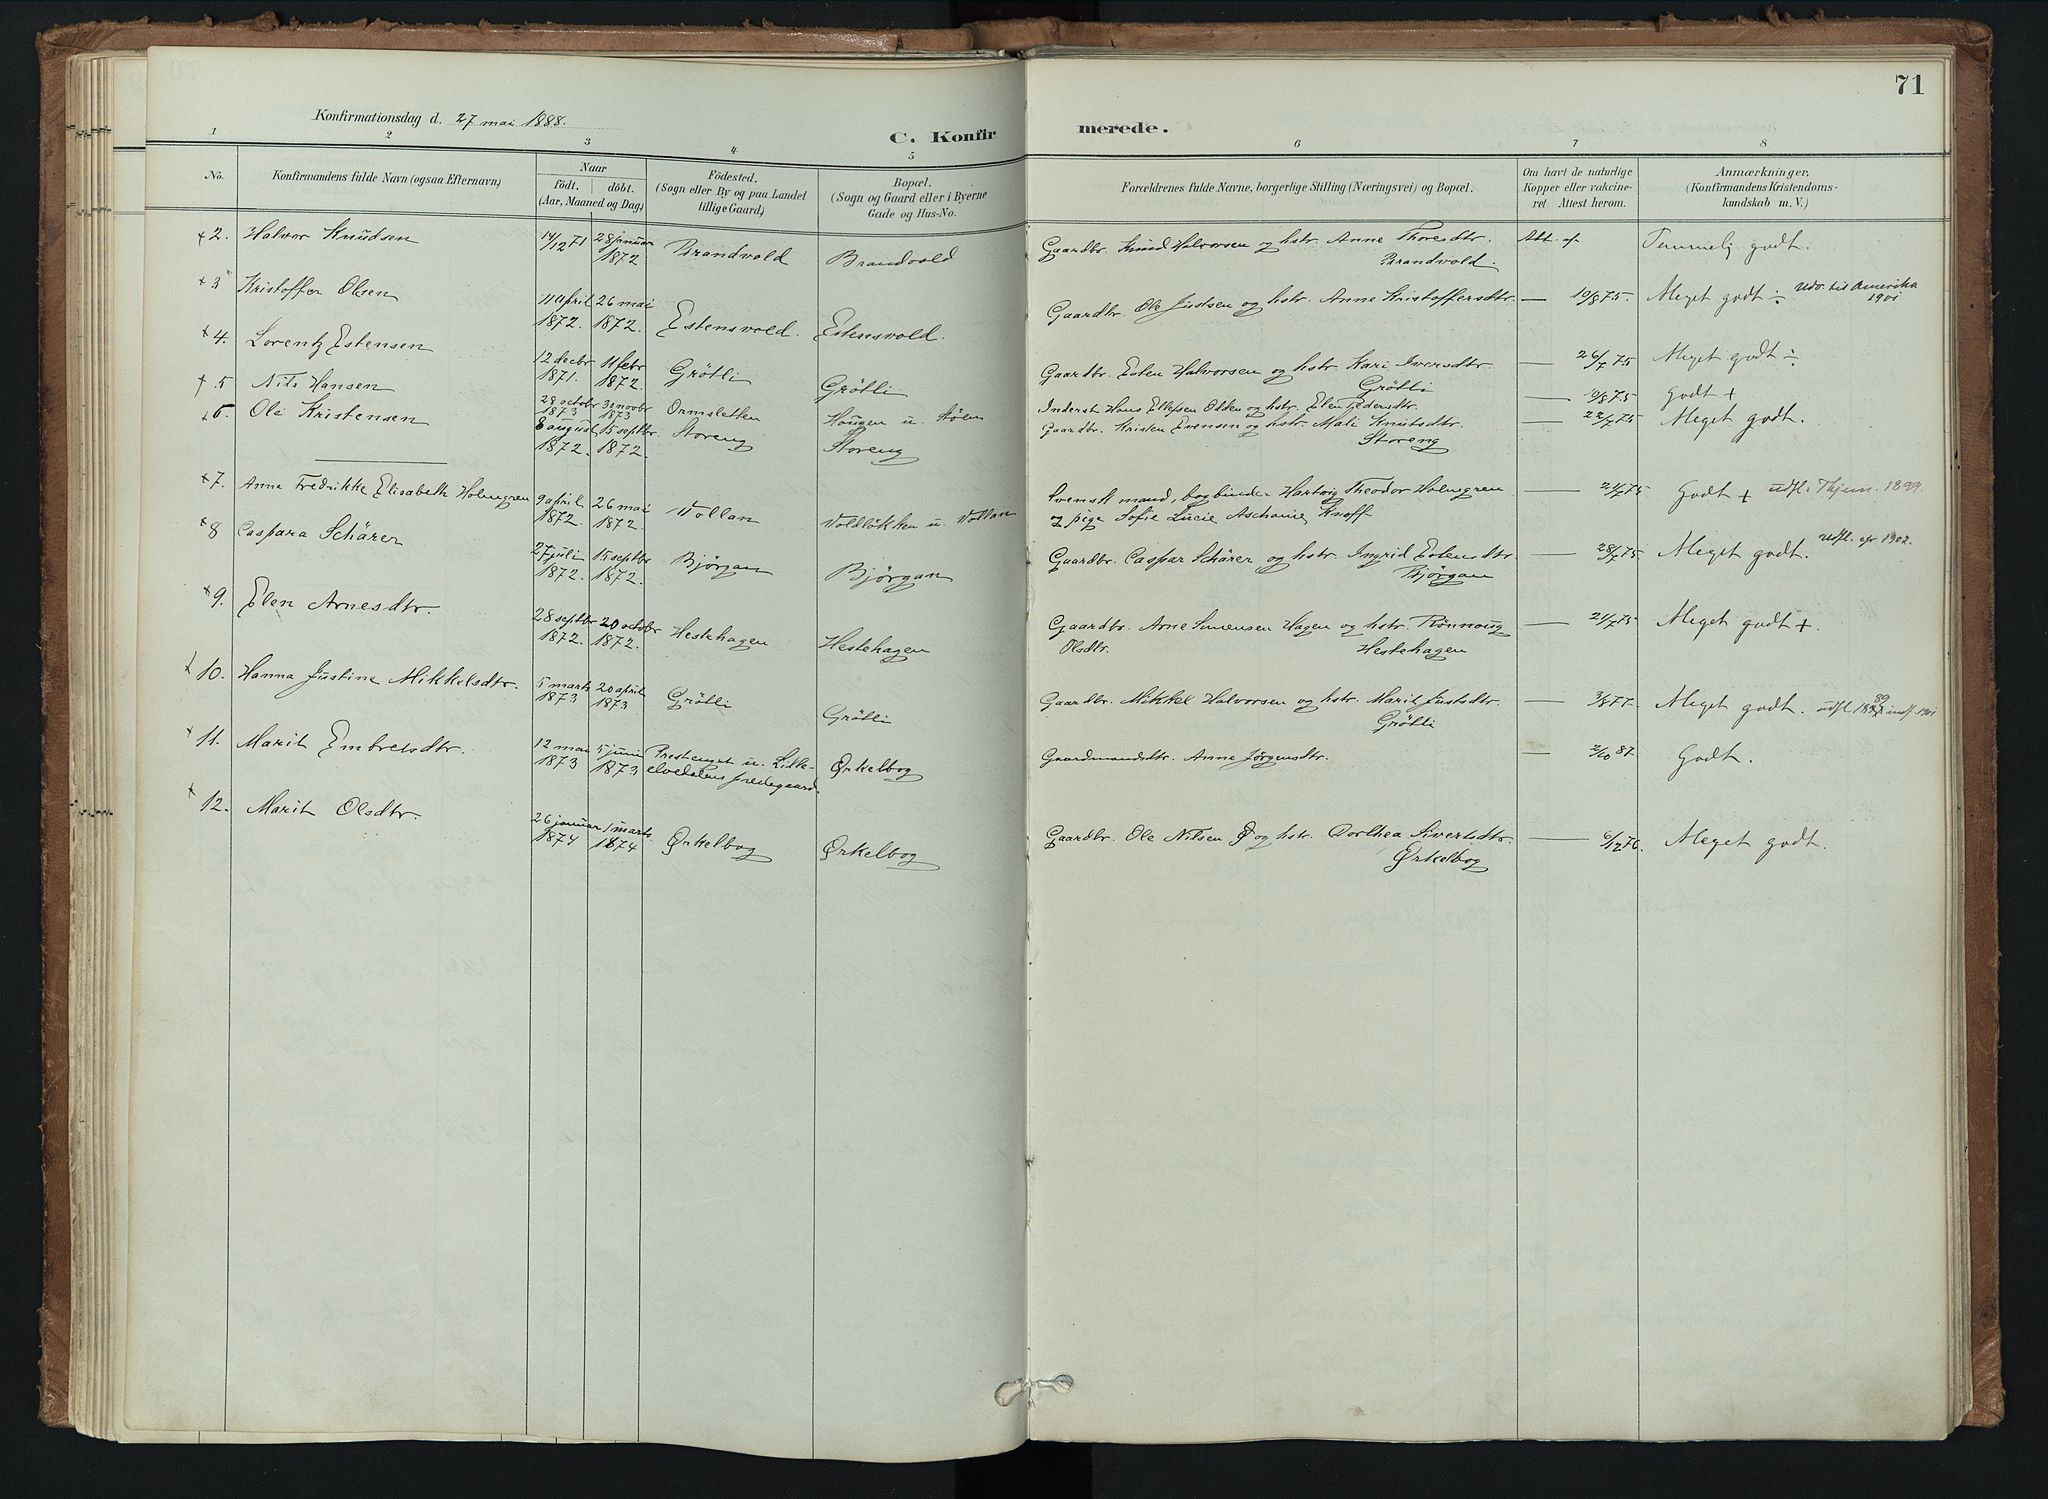 71
Konfirmationsdag d. 27 mai 1888.
C. Konfirmerede.
1 2 3 4 5 6 7 8
No. Konfirmandens fulde Navn (ogsaa Efternavn) Naar födt. döbt. (Aar, Maaned og Dag) Födested. (Sogn eller By og paa Landet tillige Gaard) Bopæl. (Sogn og Gaard eller i Byerne Gade og Hus-No. Forældrenes fulde Navne, borgerlige Stilling (Næringsvei) og Bopæl. Om havt de naturlige Kopper eller vakcineret. Attest herom. Anmærkninger. (Konfirmandens Kristendomskundskab m. V.)
2. Halvor Knudsen 14/12 71 28 januar 1872 Brandvold Brandvold Gaardbr. Knud Halvorsen og hstr. Anne Thoresdtr. Brandvold. Att. af Temmelig godt.
3 Kristoffer Olsen 11 april 1872. 26 mai 1872. Estensvold. Estensvold. Gaardbr. Ole Justsen og hstr. Anne Kristoffersdtr. — 10/8 75. Meget godt ÷ Udv. til Amerika 1901
4. Lorentz Estensen 12 decbr 1871. 11 febr 1872. Grötli Grötli Gaardbr. Esten Halvorsen og hstr. Kari Iversdtr. Grötli — 26/7 75 Meget godt ÷
5 Nils Hansen 28 octobr 1873 30 novbr 1873 Ormsletten Haugen u. Stöen Inderst Hans Ellefsen Olden og hstr. Elen Pedersdtr. — 10/8 75 Godt +
6. Ole Kristensen 8 august 1872. 15 septbr. 1872. Storeng Storeng Gaardbr. Kristen Evensen og hstr. Mali Knutsdtr. Storeng — 22/7 75 Meget godt.
7. Anne Fredrikke Elisabeth Holmgren 9 april 1872. 26 mai 1872 Vollan Voldlökken u. Vollan Svensk mand, bogbinder Hartvig Theodor Holmgren og pige Sofie Lucie Aschanie Knoff — 21/7 75 Godt + udfl. Thjem. 1899.
8 Caspara Schärer 27 juli 1872. 15 septbr 1872. Bjørgan Bjørgan Gaardbr. Caspar Schärer og hstr. Ingrid Estensdtr. Bjørgan — 28/7 75 Meget godt. Udfl. apr 1902.
9. Elen Arnesdtr. 28 septbr 1872. 20 octobr 1872. Hestehagen Hestehagen Gaardbr. Arne Simensen Hagen og hstr. Rönnaug Olsdtr. Hestehagen — 21/7 75 Meget godt +.
10. Hanna Justine Mikkelsdtr. 5 marts 1873 20 april 1873 Grötli Grötli Gaardbr. Mikkel Halvorsen og hstr. Marit Justsdtr. Grötli — 3/8 77. Meget godt. udfl. 89 indf. 1901
11. Marit Embretsdtr. 12 mai 1873 5 juni 1873 Prestenget u. Lille-elvedalens prestegaard. Ørkelbog Gaardmandsdtr. Anne Jörgensdtr. — 2/10 87 Godt.
12. Marit Olsdtr. 26 januar 1874 1 marts 1874 Ørkelbog Ørkelbog Gaardbr. Ole Nilsen Ø og hstr. Dorthea Sivertsdtr. Ørkelbog — 6/12 76. Meget godt.